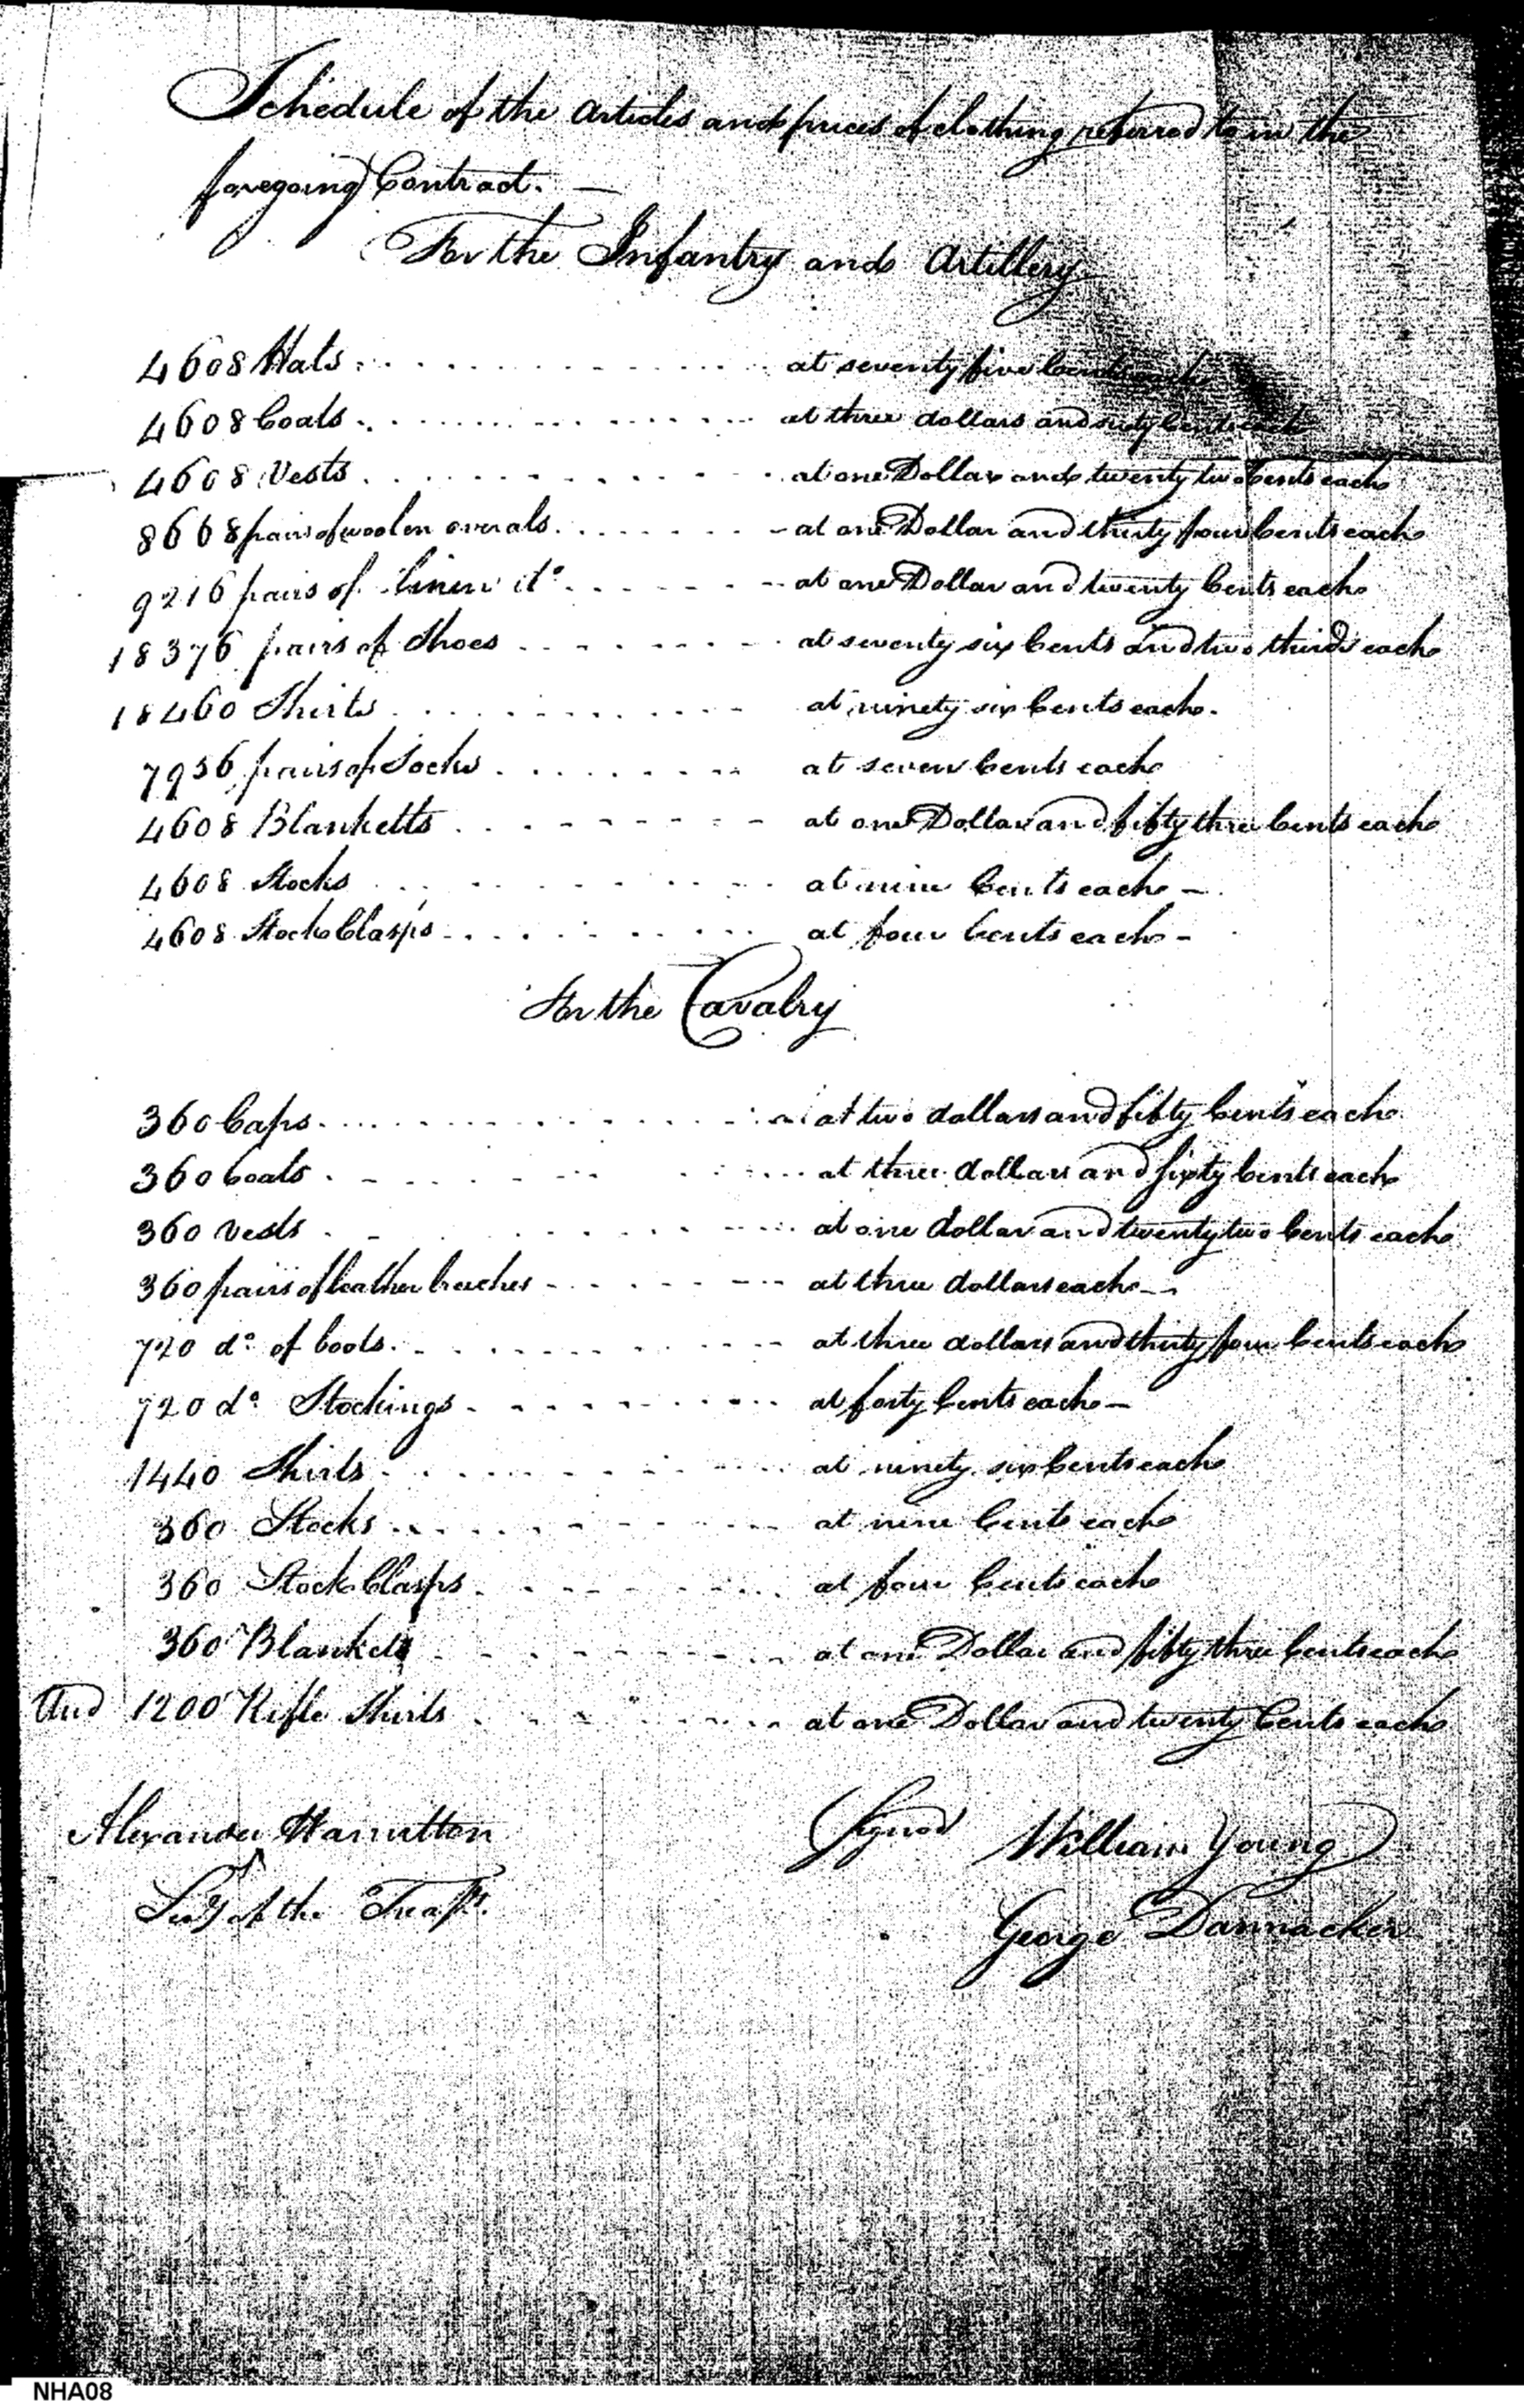 Schedule of the Articles and prices of clothing referred to in the
foregoing Contract. —
For the Infantry and Artillery
4608 Hats . . . . . . . . . . . . at seventy five Cents each
4608 Coats . . . . . . . . . . . . at three dollars and sixty Cents each
4608 Vests . . . . . . . . . . . . at one Dollar and twenty two Cents each
8668 pairs of woolen overals . . . . . . . at one Dollar and thirty four Cents each
9216 pairs of linen do . . . . . . at one Dollar and twenty Cents each
18376 pairs of Shoes . . . . . . . . at seventy six Cents and two thirds each
18460 Shirts . . . . . . . . . . . at ninety six Cents each.
7956 pairs of Socks . . . . . . . . at seven Cents each
4608 Blanketts . . . . . . . . . . at one Dollar and fifty three Cents each
4608 Stocks . . . . . . . . . . at nine Cents each —
4608 Stock Clasps . . . . . . . . at four Cents each -
For the Cavalry
360 Caps . . . . . . . . . . . . at two dollars and fifty Cents each
360 Coats . . . . . . . . . . at three dollars and sixty Cents each
360 Vests . . . . . . . . . . at one dollar and twenty two Cents each
360 pairs of leather breeches . . . . . . . at three dollars each —
720 do of boots . . . . . . . . . . at three dollars and thirty four Cents each
720 do Stockings . . . . . . . . . at forty Cents each —
1440 Shirts . . . . . . . . . . at ninety six Cents each
360 Stocks . . . . . . . . . . at nine Cents each
360 Stock Clasps . . . . . . . . . at four Cents each
360 Blankets . . . . . . . . . . at one Dollar and fifty three Cents each
And 1200 Rifle Shirts . . . . . . . . . at one Dollar and twenty Cents each
Alexander Hamilton
Signed William Young
Secy of the Treasy.
George Dannacker
NHA08